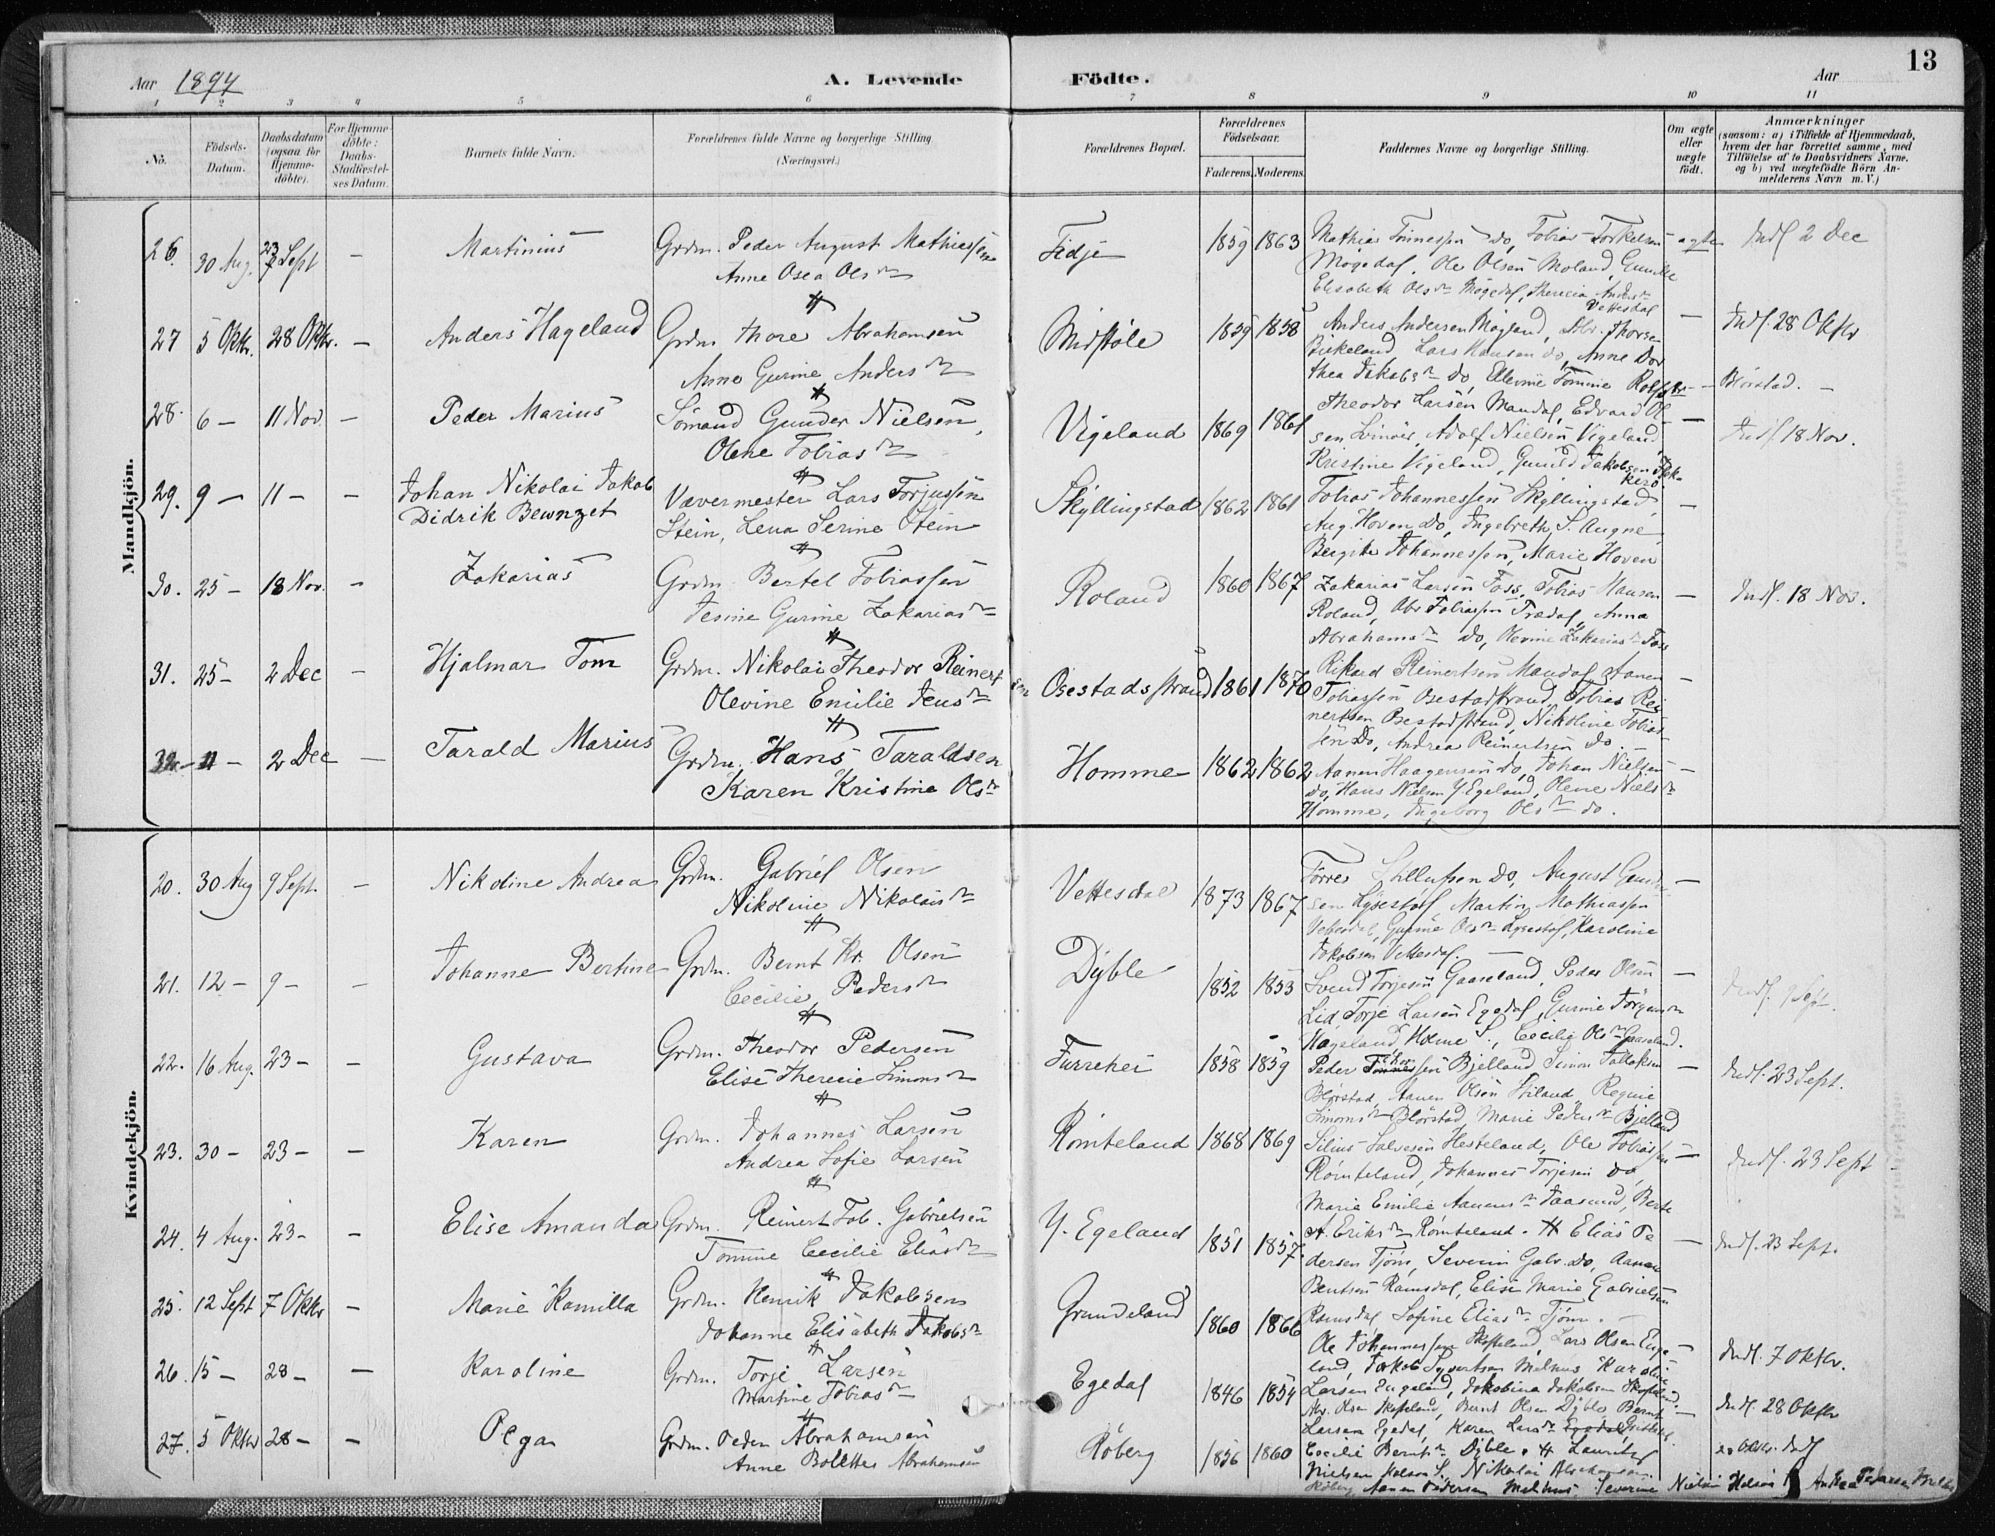 Aar 1894
A. Levende Födte.
Aar
13
1 2 3 4 5 6 7 8 9 10 11
No.
Födsels-Datum.
Daabsdatum (ogsaa for Hjemmedöbte).
For Hjemmedöbte: Daabs-Stadfæstelses Datum.
Barnets fulde Navn.
Forældrenes fulde Navne og borgerlige Stilling (Næringsvei.)
Forældrenes Bopæl.
Forældrenes Födselsaar.
Faderens. Moderens.
Faddernes Navne og borgerlige Stilling.
Om ægte eller uægte födt.
Anmærkninger
(saasom: a) i Tilfælde af Hjemmedaab, hvem der har forrettet samme, med Tilföielse af to Daabsvidners Navne, og b) ved uægtefödte Börn Anmelderens Navn m. V.)
Mandkjön.
26. 30 Aug. 23 Sept – Martinius
Grdm. Peder August Mathiassen
Anne Osea Olsdr
Fidje 1859 1863
Mathias Tønnessen do, Tobias Torkelsen
Møgedal, Ole Olsen Moland, Gunille
Elisabeth Olsdr Møgedal, Therecia Andersdr
Vettesdal
ægte Indf 2 Dec
27 5 Oktr. 28 Oktr. – Anders Hageland
Grdm Thore Abrahamsen
Anne Gurine Andersdr
Midtbøle 1859 1858
Anders Andersen Møgland, Abr. Thorsen
Birkeland, Lars Hansen do, Anne Dor
thea Jakobsdr do, Ellevine Tomine
– Indf. 28 Oktbr
28. 6 – 11 Nov. – Peder Marius
Sømand Gunder Nielsen,
Olene Tobiasdr
Vigeland 1869 1861
Theodor Larsen Mandal, Edvard Ol
sen Svinør, Adolf Nielsen Vigeland,
Kristine Vigeland, Gunild Jakobsen
– Indf 18 Nov.
29. 9 – 11 – – Johan Nikolai Jakob
Didrik Bewnzet
Vævermester Lars Torjussen
Stein, Lena Serine Stein
Skyllingstad 1862 1861
Tobias Johannessen Skyllingstad,
Aug. Hoven do, Ingebreth S. Augne
Bergite Johannessen, Marie Hoven
–
30. 25 – 18 Nov. – Zakarias
Grdm. Bertel Tobiassen
Jesine Gurine Zakariasdr
Roland 1860 1867
Zakarias Larsen Foss, Tobias Hansen
Roland, Abr Tobiassen Trædal, Anna
Abrahamsdr do, Olevine Zakariasdr Foss
– Indf. 18 Nov.
31. 25 – 2 Dec – Hjalmar Tom
Grdm. Nikolai Theodor Reinertsen
Olevine Emilie Jensdr
Osestadstrand 1861 1870
Rikard Reinertsen Mandal, Aanen
Tobiassen Osestadstrand, Tobias Rei
nertsen Osestadstrand, Nikoline Tobias
sen do, Andrea Reinertsen do.
–
32. – 11 – 2 Dec – Tarald Marius
Grdm. Hans Taraldsen
Karen Kristine Olsdr
Homme 1862 1862
Aanen Haagensen do, Johan Nielsen
do, Hans Nielsen Y. Egeland, Olene Nielsdr
Homme, Ingeborg Olsdr do.
–
Kvindekjön.
20. 30 Aug 9 Sept. – Nikoline Andrea
Grdm. Gabriel Olsen
Nikoline Nikolaisdr
Vettesdal 1873 1867
do, August
Martin Mathiassen
Gurine Olsdr Karoline
Jakobsen Vettesdal
–
21. 12 – 9 – – Johanne Bertine
Grdm. Bernt Kr. Olsen
Cecilie Pedersdr
Dyble 1852 1853
Svend Torjesen Gaaseland, Peder Olsen
Lid, Torje Larsen Egedal, Gurine Jörgensdr
Hageland, Holme S., Cecilie Olsdr Gaaseland.
– Indf. 9 Sept.
22. 16 Aug. 23 – – Gustava
Grdm. Theodor Pedersen
Elise Therecie Simonsdr
Furrehei 1858 1859
Peder Bjelland, Simon Tallaksen
Blørstad, Aanen Olsen Stiland, Regine
Simonsdr Blørstad, Marie Pedersdr Bjelland
– Indf. 23 Sept.
23. 30 – 23 – – Karen
Grdm. Johannes Larsen
Andrea Sofie Larsen
Rømteland 1868 1869
Silius Salvesen Hesteland, Ole Tobiassen
Rømteland, Johannes Torjesen do,
Marie Emilie Aanensdr Faasund, Berte
A. Eriksdr Rømteland.
– Indf. 23 Sept
24. 4 Aug. 23 – – Elise Amanda
Grdm. Reinert Tob. Gabrielsen
Tomine Cecilie Eliasdr
Y. Egeland 1851 1857.
# Elias Pe
dersen Tjøm, Severin Gabr. do, Aanen
Berntsen Ramsdal, Elise Marie Gabrielsen
Ramsdal, Sofine Eliasdr Tjøm.
– Indf. 23 Sept.
25. 12 Sept 7 Oktbr – Marie Kamilla
Grdm. Henrik Jakobsen
Johanne Elisabeth Jakobsdr
Grundeland 1860 1866
Ole Johannessen Skofteland, Lars Olsen Enge
land, Jakob Syvertsen Melhus, Karoline
Larsen Engeland, Jakobina Jakobsen
– Indf. 7 Oktbr.
26. 15 – 28 – – Karoline
Grdm. Torje Larsen
Martine Tobiasdr
Egedal 1846 1854
Abr. Olsen Skofteland, Bernt Olsen Dyble, Bernt
Larsen Egedal, Karen Larsdr
Cecilie Berntsdr Dyble.
– Indf. 28 Oktbr
27. 5 Oktbr 28 – – Olga
Grdm. Peder Abrahamsen
Anne Bolette Abrahamsen
Røberg 1856 1860
# Lauritz
Nielsen Holum S., Nikolai Abrahamsen
Røberg, Aanen Pedersen Melhus, Severine Nielsen